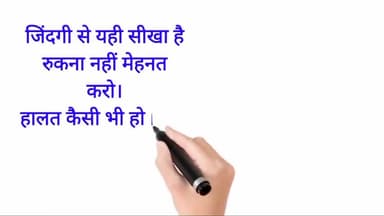 जिंदगी से यही सीखा है
रुकना नहीं मेहनत
करो।
हालत कैसी भी हो।